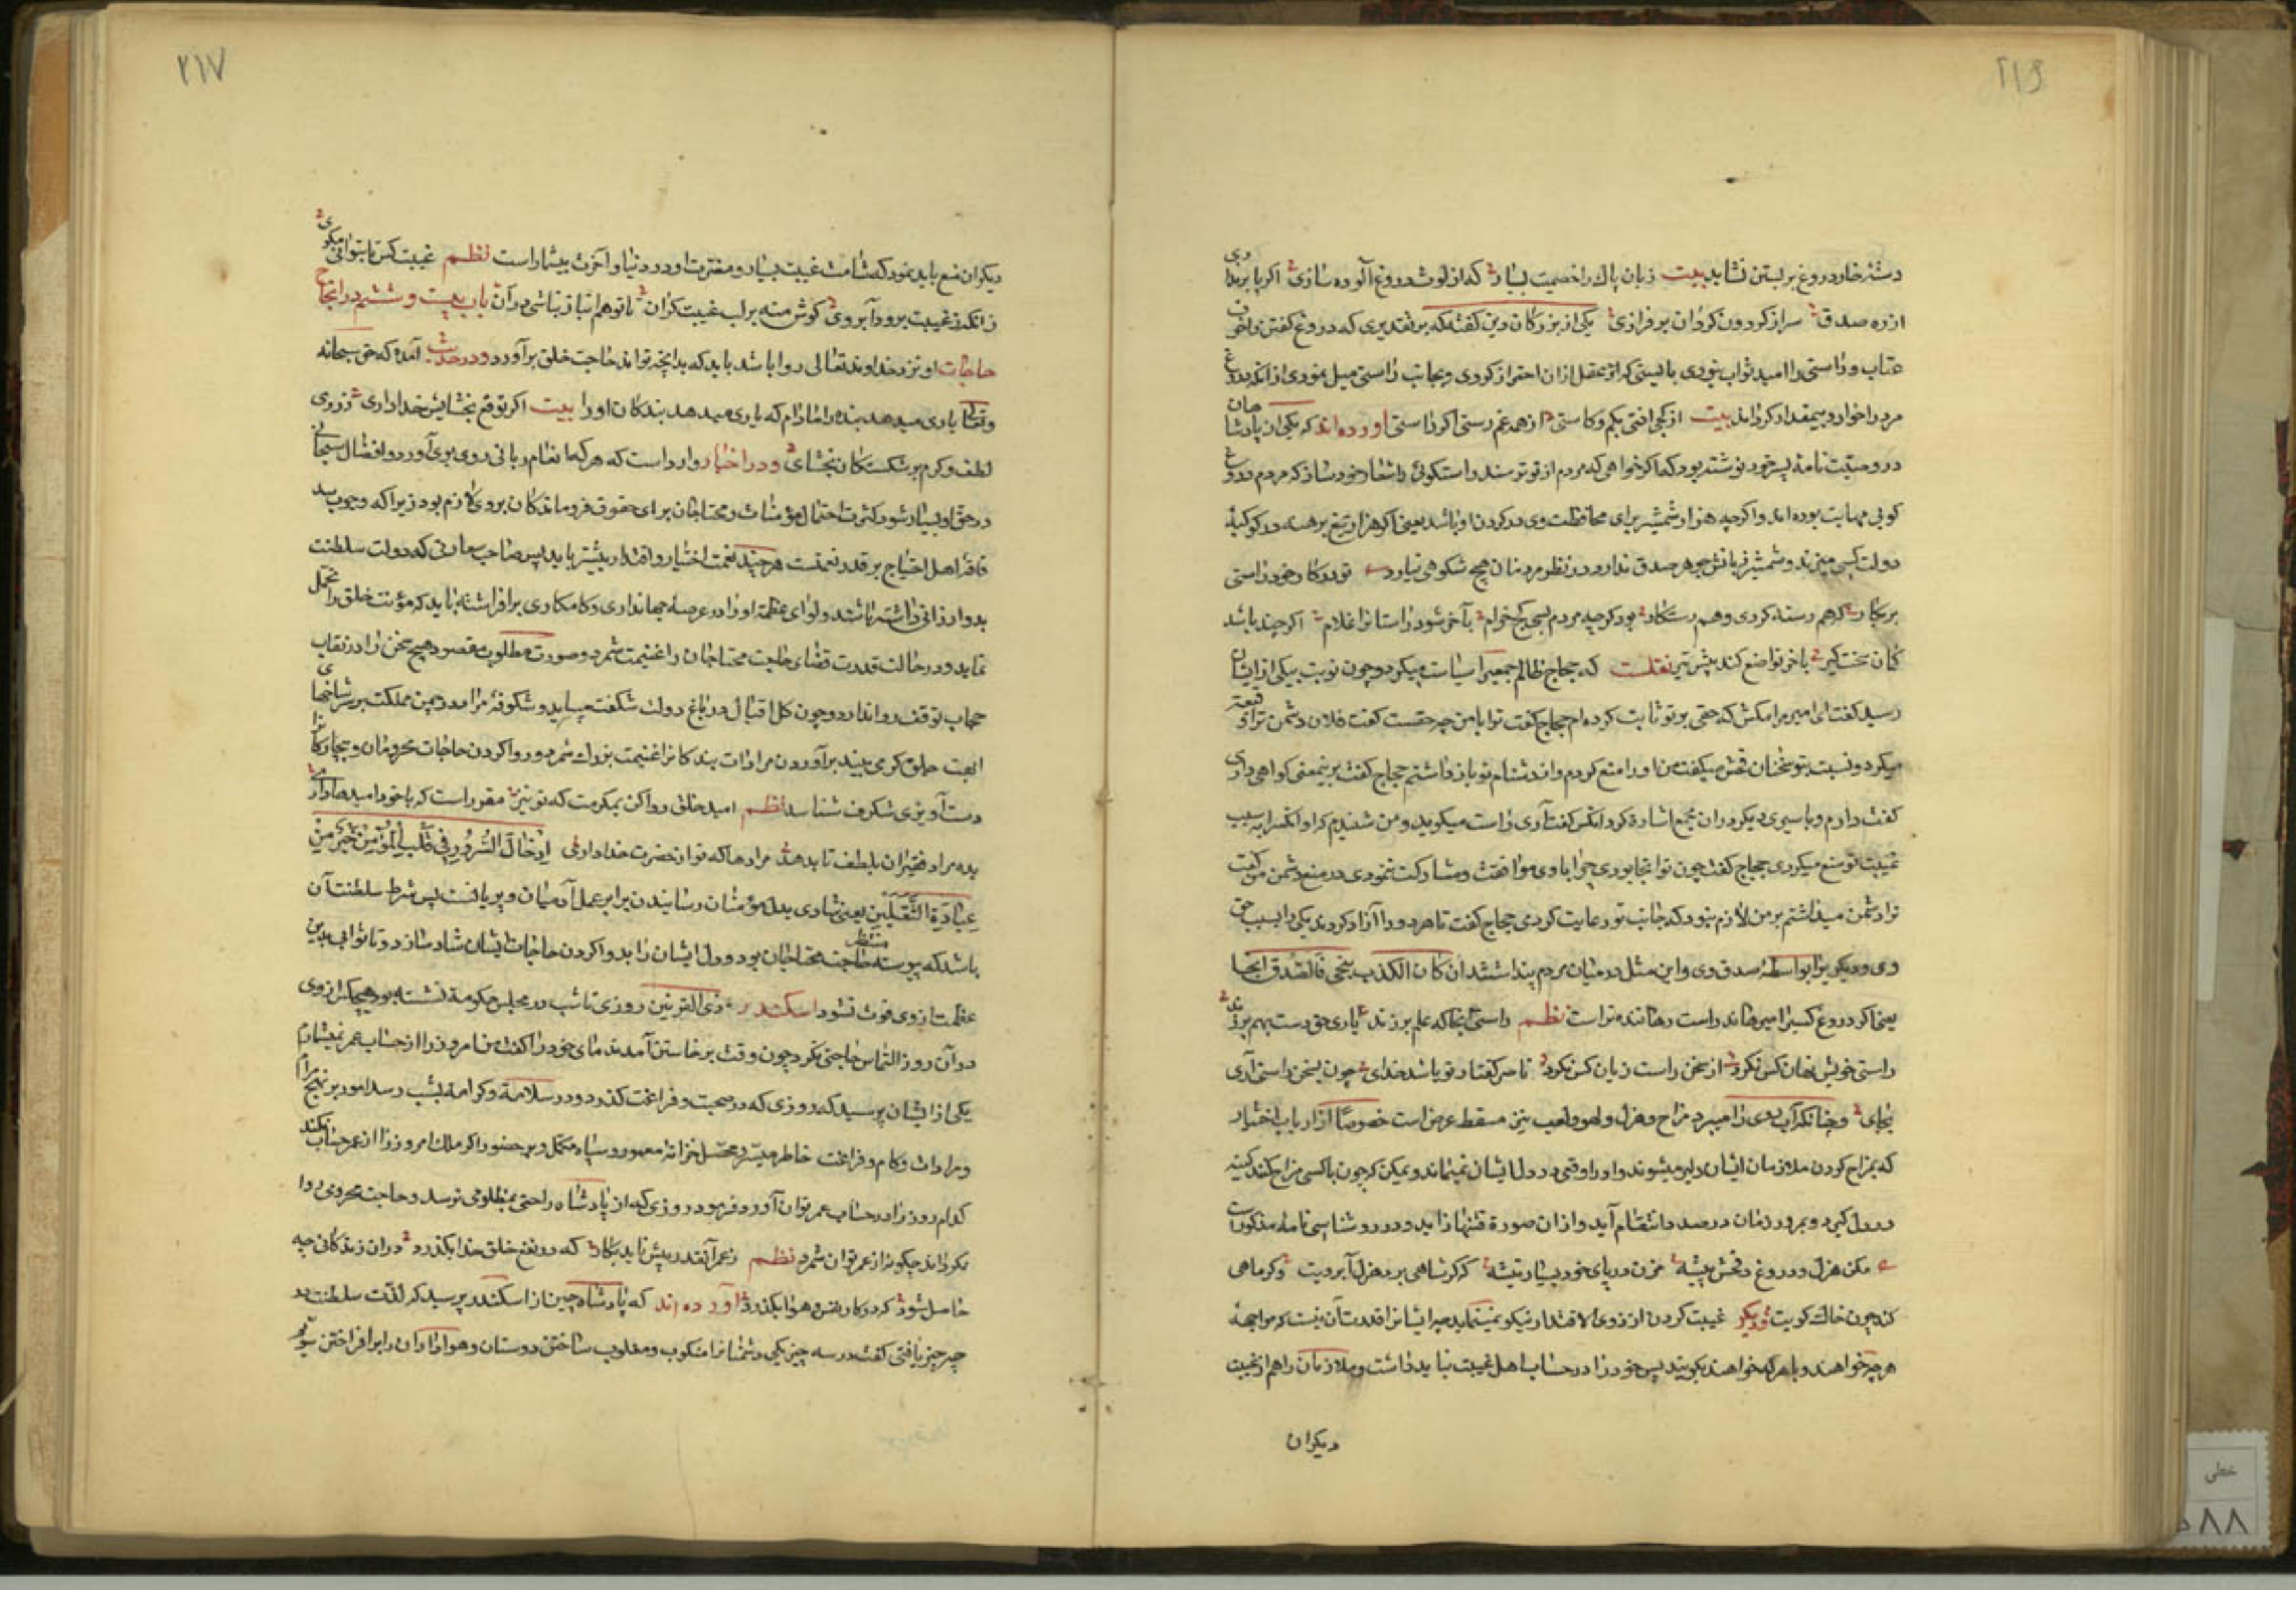 ۲۱۶
دسته خار دروغ بر بستن نشاید بیت زبان پاک را خصمیت بسیار که از لوث دروغ آلوده سازی اگر پا برنداری
از ره صدق سر از گردون گردان بر فرازی یکی از بزرگان دین گفته که بر تقدیری که دروغ گفتن خوف
عتاب و راستی را امید ثواب نبودی بایستی که اثر عقل ازان احتراز کردی و بجانب راستی میل نمودی ازانکه دروغ
مرد را خوار و بیمقدار گرداند بیت از کجی افتی بکم و کاستی از همه غم رستی اگر راستی آورده اند که یکی از پادشاهان
در وصیت نامهٔ پسر خود نوشته بود که اگر خواهی که مردم از تو ترسند راستگوئی را شعار خود ساز که مردم دروغ
گوی بی مهابت بوده اند و اگرچه هزار شمشیر برای محافظت وی در گردن او باشد یعنی اگر هزار تیغ برهنه در کوکبهٔ
دولت کسی میزند و شمشیر زبانش جوهر صدق ندارد در نظر مردمان هیچ شکوهی نیارد تو در کار خود راستی
بر کار که هم رسته گردی و هم رستگار بود گرچه مردم بسی کج خرام بآخر شود راستانرا غلام اگر چند باشد
کمان سخت گیر بآخر تواضع کند پیش تیر نقلست که حجاج ظالم جمعیرا سیاست میکرد و چون نوبت بیکی از ایشان
رسید گفت ای امیر مرا مکش که حقی بر تو ثابت کرده ام حجاج گفت ترا با من چه حقست گفت فلان دشمن ترا وقیعه
میکرد و نسبت بتو سخنان فحش میگفت من او را منع کردم و از دشنام تو باز داشتم حجاج گفت بر ینمعنی گواهی داری
گفت دارم و باسیری دیگر دران مجمع اشاره کرد انکس گفت آری راست میگوید و من شنیدم که او انکسرا به سبب
غیبت تو منع میکرد حجاج گفت چون تو انجا بودی چرا با وی موافقت و مشارکت ننمودی در منع دشمن من گفت
ترا دشمن میداشتم بر من لازم نبود که جانب تو رعایت کردمی حجاج گفت تا هر دو را آزاد کردند یکی را بسبب حق
وی و دیگری را بواسطهٔ صدق وی و این مثل در میان مردم پیدا شد ان کان الکذب ینجی فالصدق انجی
یعنی اگر دروغ کسیرا میرهاند راست رهاننده تر است نظم راستی آنجا که علم بر زند یاری حق دست بهم بر زند
راستی خویش نهان کس نکرد از سخن راست زیان کس نکرد ناصر گفتار تو باشد خدای چون بسخن راستی آری
بجای و چنانکه آب روی را میبرد مزاح و هزل و لهو و لعب نیز مسقط عرض است خصوصا از ارباب اختیار
که بمزاح کردن ملازمان ایشان دلیر میشوند و او را وقعی در دل ایشان نمیماند و یمکن که چون با کسی مزاح کند کینه
در دل گیرد و بمرور زمان در صدد انتقام آید و ازان صورة فتنها زاید و در روشناسی نامه مذکوراست
مکن هزل و دروغ و فحش پیشه مزن در پای خود بسیار تیشه که گر شاهی برد هزل آبرویت وگر ماهی
کند چون خاک کویت و دیگر غیبت کردن از ذوی الاقتدار نیکو نمینماید چه ایشانرا قدرت آن هست که مواجههٔ
هر چه خواهند و با هر که خواهند بگویند پس خود را در حساب اهل غیبت نباید داشت و ملازمان را هم از غیبت
دیگران
۲۱۷
دیگران منع باید نمود که شامت غیبت بسیار و مضرت او در دنیا و آخرت بیشمار است نظم غیبت کس تا بتوانی مگوی
زانکه ز غیبت برود آبروی گوش منه بر لب غیبت گران تا تو هم انباز نباشی دران باب بیست و ششم در انجاح
حاجات او نزد خداوند تعالی روا باشد باید که بدانچه تواند حاجت خلق برآورد و در حدیث آمده که حق سبحانه
وتعالی یاری میدهد بنده را مادام که یاری میدهد بندگان او را بیت اگر توقع بخشایش خدا داری ز روی
لطف و کرم بر شکستگان بخشای و در اخبار وارد است که هر کرا انعام ربانی روی بوی آورد و افضال سبحانی
در حق او بسیار شود کثرت احتمال مؤنات و محتاجان برای حقوق فروماندگان بروی لازم بود زیرا که وجوب سد
فاقهٔ اهل احتیاج بر قدر نعمتست هر چند نعمت اختیار و اقتدار بیشتر باید پس صاحب سعادتی که دولت سلطنت
بدو ارزانی داشته باشند و لوای عظمة او را در عرصهٔ جهانداری و کامکاری برافراشته باید که مؤنت خلق را تحمل
نماید و در حالت قدرت قضای حاجت محتاجان را غنیمت شمرد و صورت مطلوب و مقصود هیچ سخن را در نقاب
حجاب توقف روا ندارد و چون گل اقبال در باغ دولت شکفته میباید و شکوفهٔ مراد در چمن مملکت بر شاخهای
بهجت جلوه گر می بیند برآوردن مرادات بندگانرا غنیمت بزرگ شمرد و روا کردن حاجات محرومان و بیچارگانرا
دست آویزی شگرف شناسد نظم امید خلق روا کن بمکرمت که تو نیز مقرر است که باخود امیدها داری
بده مراد فقیران بلطف تا بدهد مرادها که تو از حضرت خدا داری إِدْخَالُ السُّرُورِ فِی قَلْبِ الْمُؤْمِنِ خَیْرٌ مِنْ
عِبَادَةِ الثَّقَلَیْنِ یعنی شادی بدل مؤمنان رسانیدن برابر عمل آدمیان و پریانست پس شرط سلطنت آن
باشد که پیوسته منتظر حاجت محتاجان بود و دل ایشان را بروا کردن حاجات ایشان شاد سازد و تا ثوابی بدین
عظمت از وی فوت نشود اسکندر ذی القرنین روزی تا شب در مجلس حکومة نشسته بود هیچکس از وی
دران روز التماس حاجتی نکرد چون وقت برخاستن آمد ندمای خود را گفت من امروز را از حساب عمر نمیشمارم
یکی از ایشان پرسید که روزی که در صحبت و فراغت گذرد و در سلامة و کرامة بشب رسد امور بر نهج مرام
و مرادات و کام و فراغت خاطر میسر و محصل خزانه معمور و سپاه مکمل و بر حضور اگر ملک امروز را از عمر حساب نکند
کدام روز را در حساب عمر توان آورد فرمود روزی که از پادشاه راحتی بمظلومی نرسد و حاجت محرومی روا
نگرداند چگونه از عمر توان شمرد نظم ز عمر آنقدر پیش ناید بکار که در نفع خلق خدا بگذرد دران زندگانی چه
حاصل شود که در کار نفس و هوا بگذرد آورده اند که پادشاه چین از اسکندر پرسید که لذت سلطنت در
چه چیز یافتی گفت در سه چیز یکی دشمنانرا منکوب و مغلوب ساختن دوستان و هواداران را برافراختن سوم
خطی